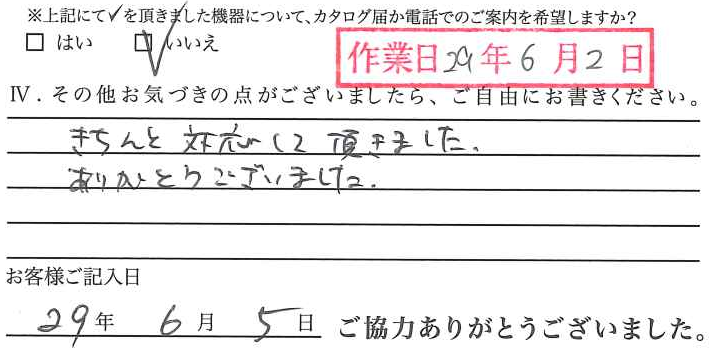 ※上記にて✓を頂きました機器について、カタログ届か電話でのご案内を希望しますか?
□ はい ☑ いいえ
作業日29年6月2日
Ⅳ．その他お気づきの点がございましたら、ご自由にお書きください。
きちんと対応して頂きました。
ありがとうございました。
お客様ご記入日
29年 6月 5日 ご協力ありがとうございました。